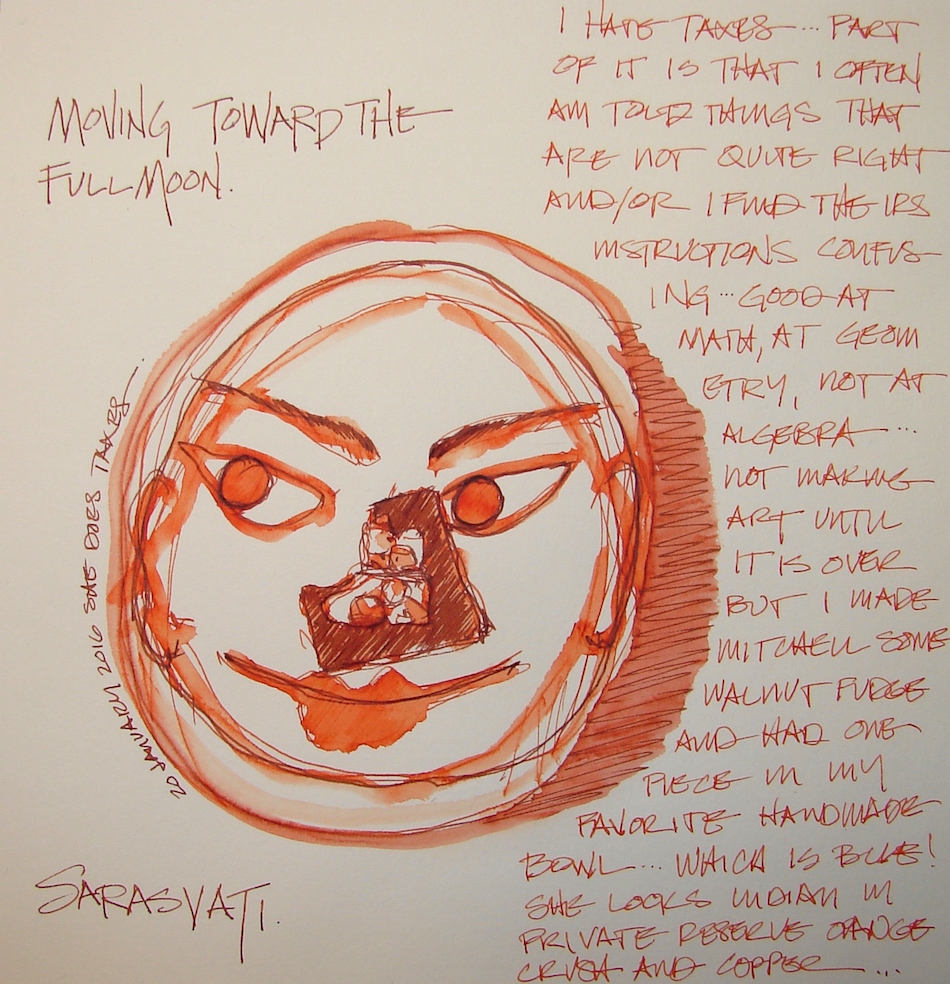 MOVING TOWARD THE
FULL MOON.
I HATE TAXES... PART
OF IT IS THAT I OFTEN
AM TOLD THINGS THAT
ARE NOT QUITE RIGHT
AND/OR I FIND THE IRS
INSTRUCTIONS CONFUS-
ING... GOOD AT
MATH, AT GEOM
ETRY, NOT AT
ALGEBRA...
NOT MAKING
ART UNTIL
IT IS OVER
BUT I MADE
MITCHELL SOME
WALNUT FUDGE
AND HAD ONE
PIECE IN MY
FAVORITE HANDMADE
BOWL... WHICH IS BLUE!
SHE LOOKS INDIAN IN
PRIVATE RESERVE ORANGE
CRUSH AND COPPER...
20 JANUARY 2016 SHE DOES TAXES
SARASVATI.